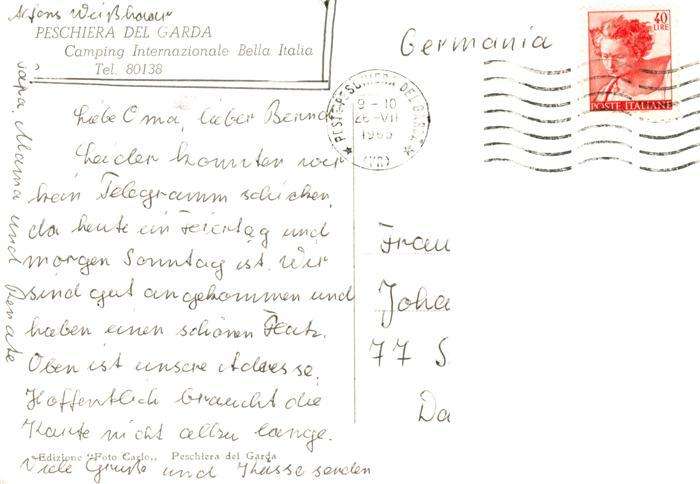 Alfons Weißhaar
PESCHIERA DEL GARDA
Camping Internazionale Bella Italia
Tel. 80138
Germania
40
LIRE
POSTE ITALIANE
PESCHIERA DEL GARDA
9 - 10
26 · VII
(VR)
Liebe Oma, lieber Bernd
Leider konnten wir
kein Telegramm schicken,
da heute ein Feiertag und
morgen Sonntag ist. Wir
sind gut angekommen und
haben einen schönen Platz.
Oben ist unsere Adresse.
Hoffentlich braucht die
Karte nicht allzu lange.
Viele Grüße und Küsse senden
Papa, Mama und Renate
Frau
Joha
77 S
Da
Edizione "Foto Carlo" Peschiera del Garda